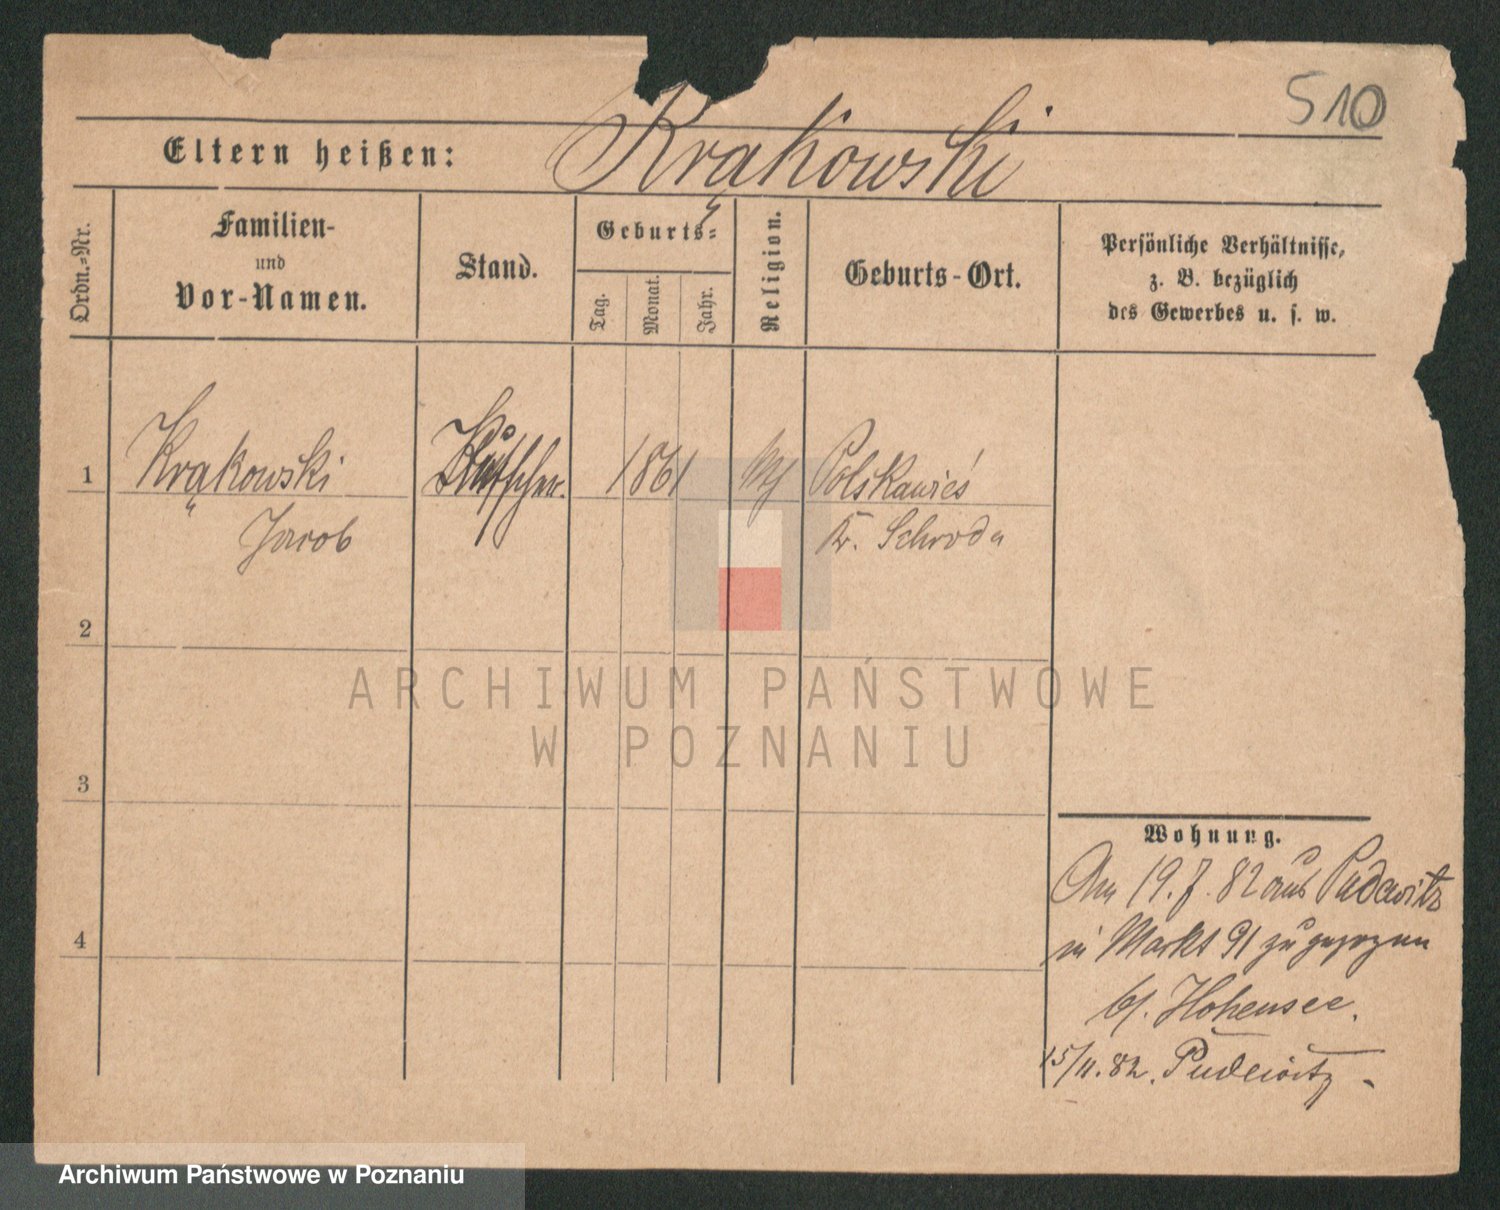 510
Eltern heißen: Krąkowski
Ordn.-Nr.
Familien-
und
Vor-Namen.
Stand.
Geburts-
Tag.
Monat.
Jahr.
Religion.
Geburts-Ort.
Persönliche Verhältnisse,
z. B. bezüglich
des Gewerbes u. s. w.
1 Krąkowski Kutscher. 1861 Polskawieś
Jacob Kr. Schroda
2
ARCHIWUM PAŃSTWOWE
W POZNANIU
3
Wohnung.
Am 19.7.82 aus Pudewitz
in Markt 91 zugezogen
4
b/. Hohensee.
15/11.82. Pudewitz
Archiwum Państwowe w Poznaniu